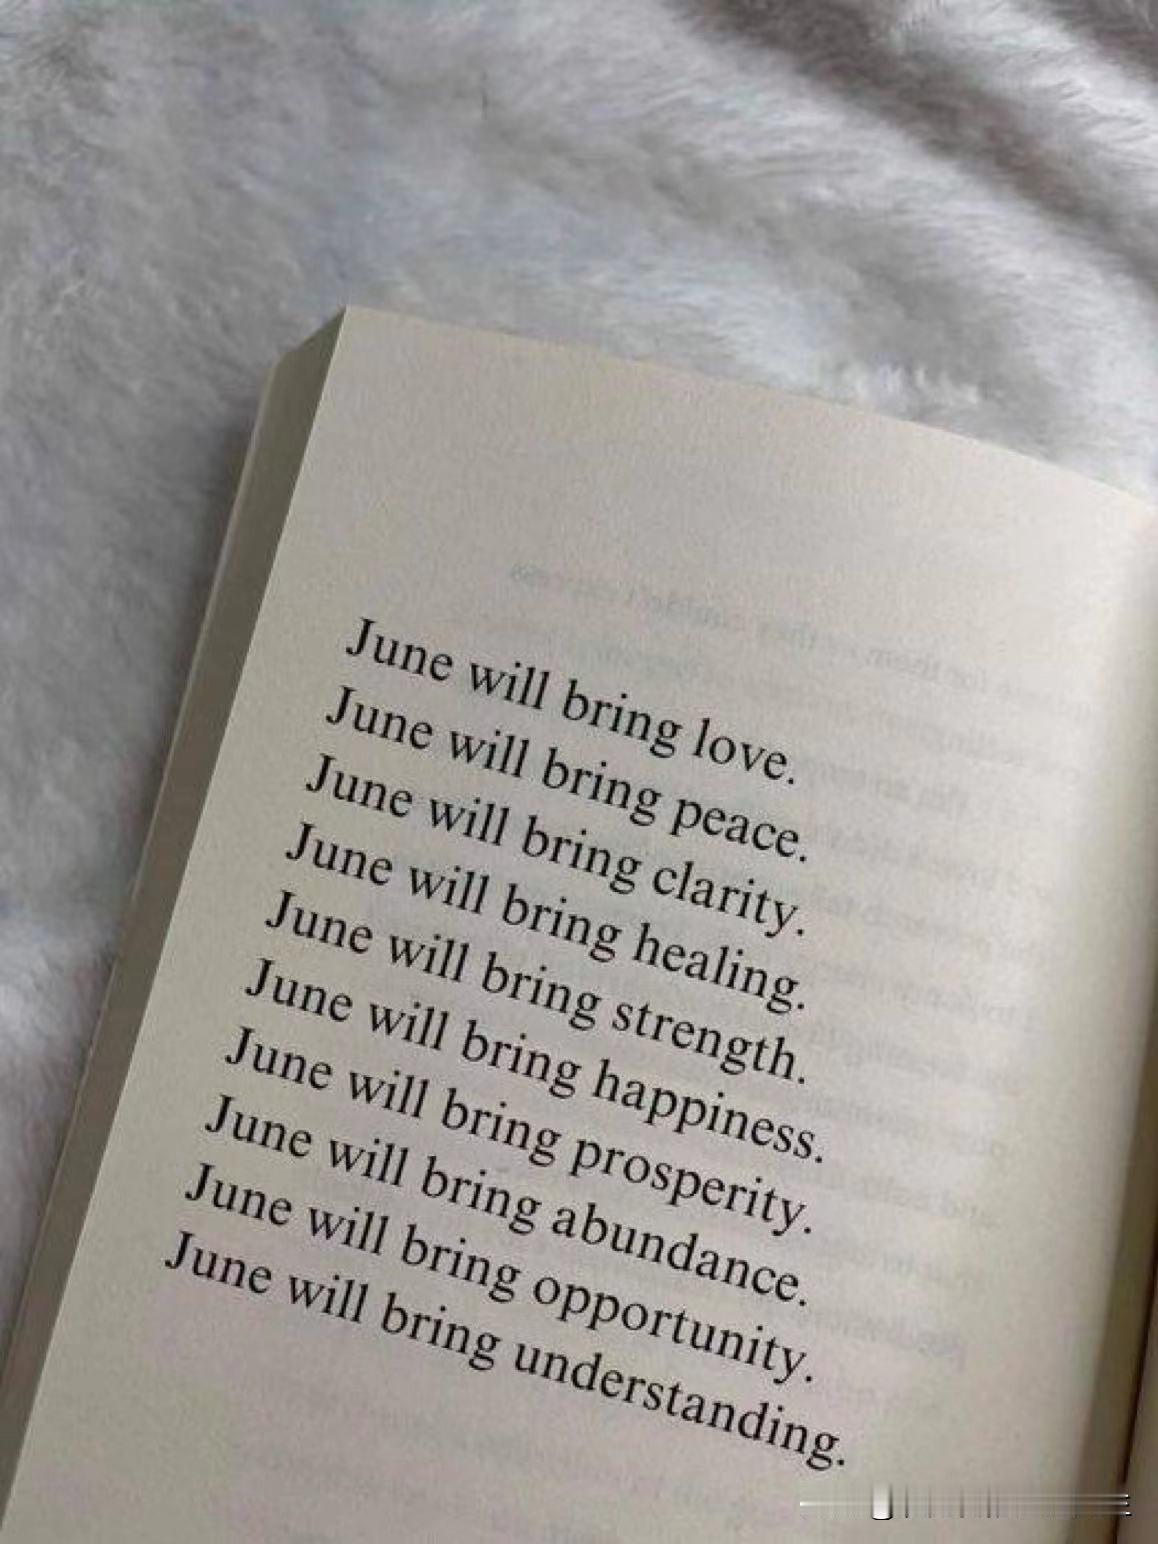 June will bring love.
June will bring peace.
June will bring clarity.
June will bring healing.
June will bring strength.
June will bring happiness.
June will bring prosperity.
June will bring abundance.
June will bring opportunity.
June will bring understanding.